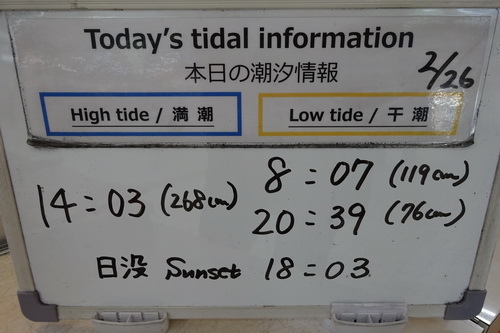 Today's tidal information
本日の潮汐情報
2/26
High tide / 満潮
Low tide / 干潮
14:03 (268cm)
8:07 (119cm)
20:39 (76cm)
日没 Sunset 18:03